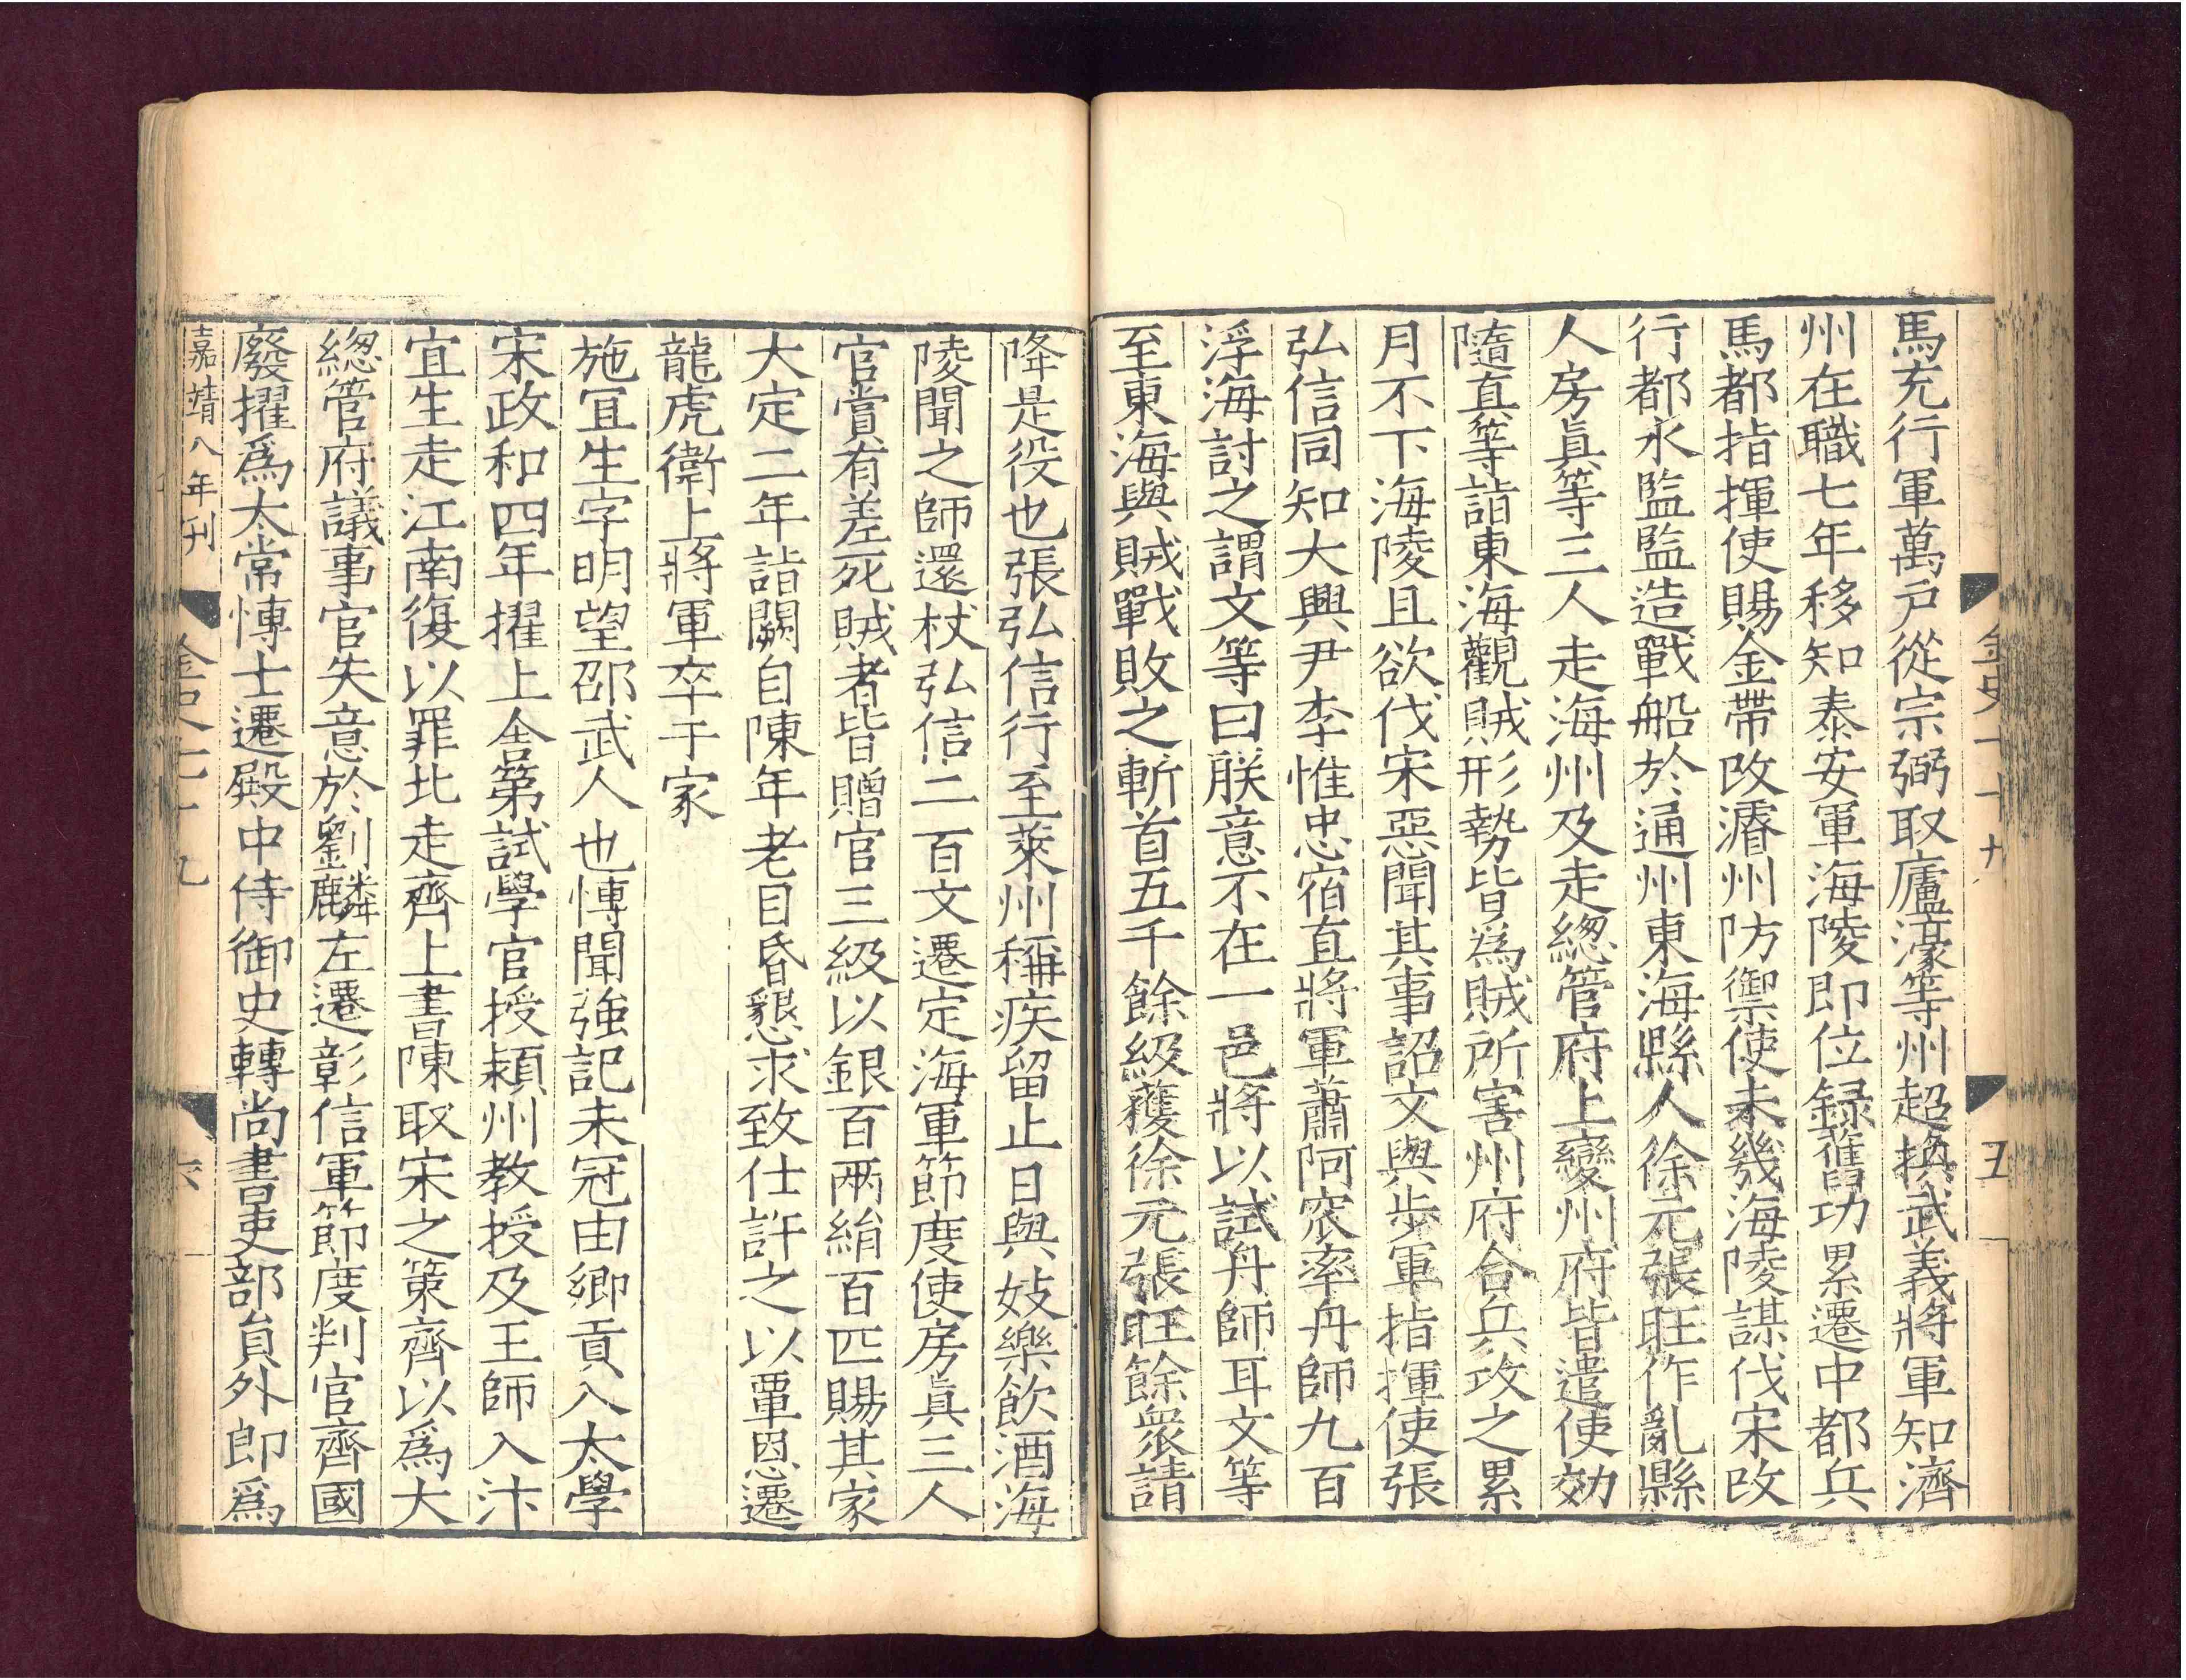 金史 十九 五
馬充行軍萬戸從宗弼取廬濠等州超換武義將軍知濟
州在職七年移知泰安軍海陵即位録舊功累遷中都兵
馬都指揮使賜金帶改濬州防禦使未幾海陵謀伐宋改
行都水監監造戰船於通州東海縣人徐元張旺作亂縣
人房眞等三人走海州及走緫管府上變州府皆遣使効
隨直等詣東海觀賊形勢皆為賊所害州府合兵攻之累
月不下海陵且欲伐宋惡聞其事詔文與歩軍指揮使張
弘信同知大興尹李惟忠宿直將軍蕭阿窊率舟師九百
浮海討之謂文等曰朕意不在一邑將以試舟師耳文等
至東海與賊戰敗之斬首五千餘級獲徐元張旺餘衆請
降是役也張弘信行至萊州稱疾留止日與妓樂飲酒海
陵聞之師還杖弘信二百文遷定海軍節度使房眞三人
官賞有差死賊者皆贈官三級以銀百兩絹百匹賜其家
大定二年詣闕自陳年老目昏懇求致仕許之以覃恩遷
龍虎衛上將軍卒于家
施宜生字明望邵武人也博聞強記未冠由鄉貢入太學
宋政和四年擢上舍第試學官授潁州教授及王師入汴
宜生走江南復以罪北走齊上書陳取宋之策齊以爲大
緫管府議事官失意於劉麟左遷彰信軍節度判官齊國
廢擢爲太常博士遷殿中侍御史轉尚書吏部員外郎爲
嘉靖八年刊 金史七十九 六